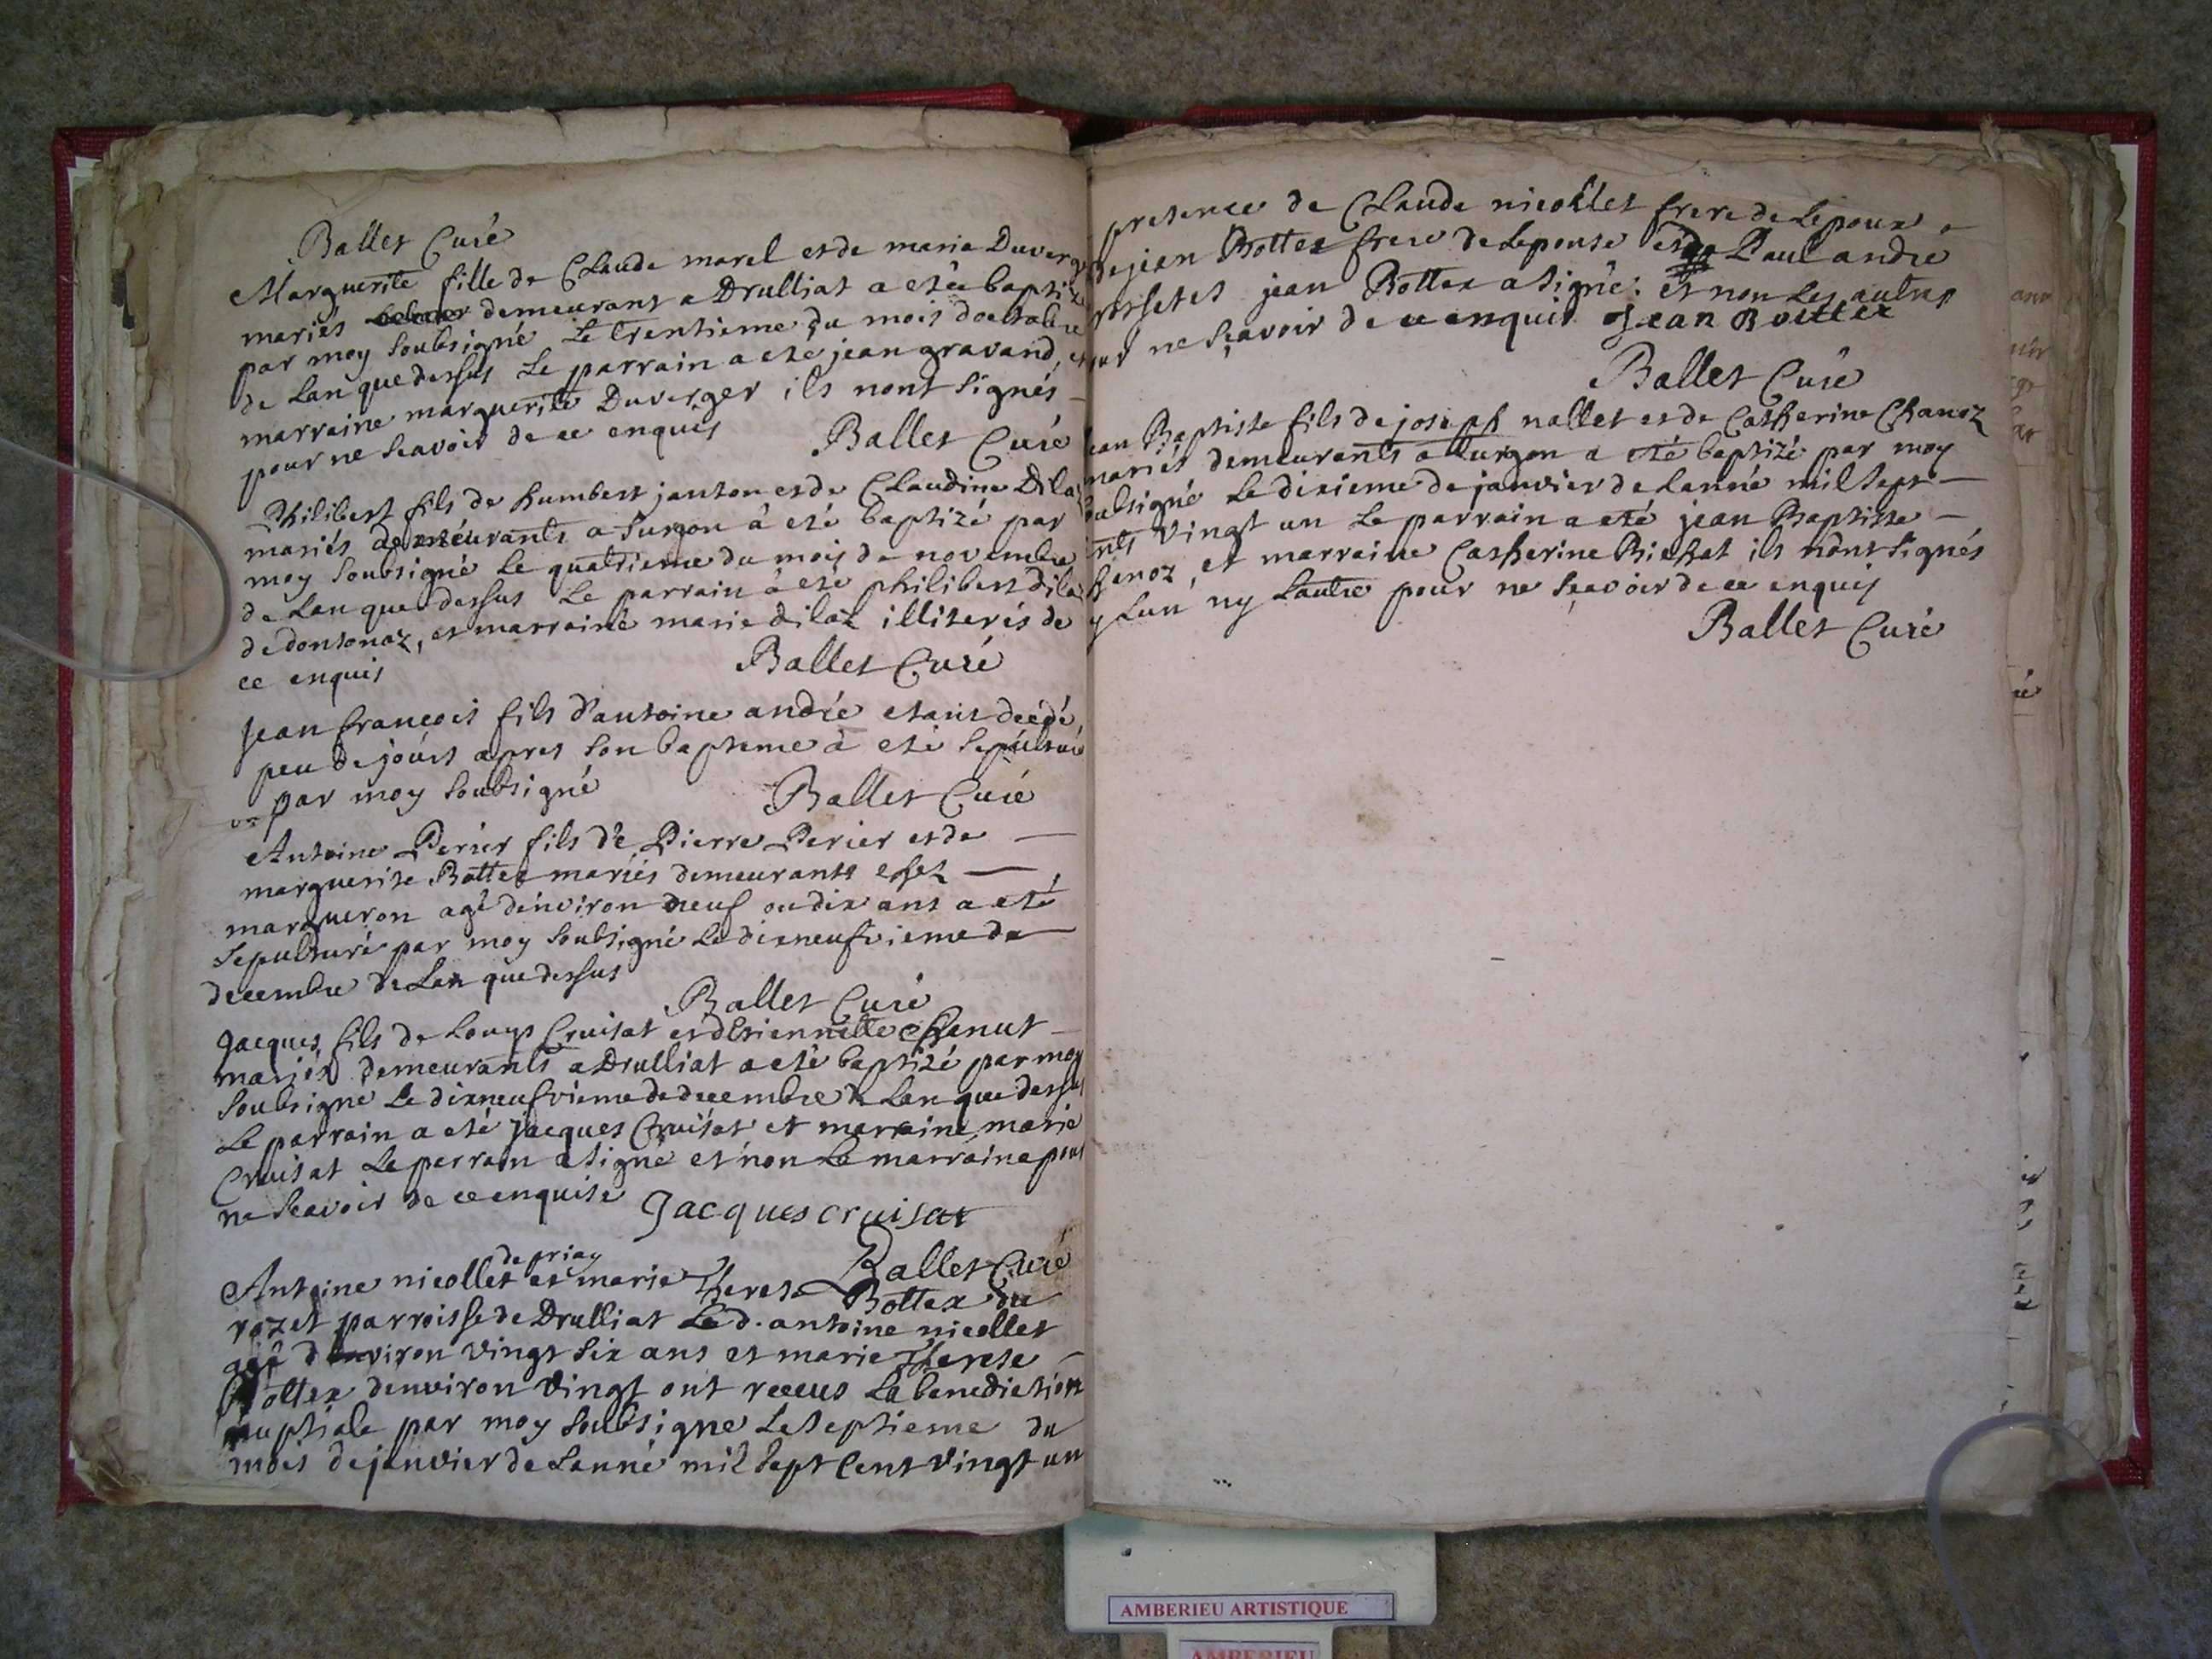 Ballet Curé
Marguerite fille de Claude marel et de marie Duverg
mariés demeurant a Drulliat a etée baptiz
par moy soubsigné le trentieme du mois doctobre
de lan que dessus le parrain a eté jean gravand, et
marraine marguerite Duverger ils nont signés
pour ne scavoir de ce enquis
Ballet Curé
Philibert fils de humbert janton et de Claudine Dila
mariés demeurants a Turgon à eté baptizé par
moy soubsigné le quatrieme du mois de novembre
de lan que dessus le parrain à eté philibert dila
de dontonaz, et marraine marie dilaz illiterés de
ce enquis
Ballet Curé
Jean francois fils d'antoine andré etant decédé
peu de jours apres son bapteme à eté sepulturé
par moy soubsigné
Ballet Curé
Antoine Perier fils de Pierre Perier et de
marguerite Bottex mariés demeurants
margueron agé denviron neuf ou dix ans a eté
sepulturé par moy soubsigné le dixneufvieme de
decembre de lan que dessus
Ballet Curé
Jacques fils de Louys Cruisat et detiennette Chanut
mariés demeurants a Drulliat a eté baptizé par moy
soubsigné le dixneufviéme de decembre de lan que dessus
le parrain a eté jacques Cruisat et marraine marie
Cruisat le parrain a signé et non la marraine pour
ne scavoir de ce enquise
Jacques cruisat
Ballet Curé
de priay
Antoine nicollet et marie Therese Bottex du
rozet parroisse de Drulliat le d. antoine nicollet
agé denviron vingt six ans et marie Therese
Bottex denviron vingt ont receus la benediction
nuptiale par moy soubsigné le septieme du
mois de janvier de lanné mil sept cent vingt un
presence de Claude nicollet frere de lepoux
de jean Bottex frere de lepouse et de Paul andre
jean Bottex a signé: et non les autres
ne sçavoir de ce enquis Jean Bottex
Ballet Curé
ean Baptiste fils de joseph nallet et de Catherine Chanoz
mariés demeurants a Turgon a eté baptizé par moy
oubsigné le dixieme de janvier de lanné mil sept
ents vingt un le parrain a eté jean Baptiste
henoz, et marraine Catherine Bichat ils nont signés
y lun ny lautre pour ne sçavoir de ce enquis
Ballet Curé
AMBERIEU ARTISTIQUE
AMBERIEU